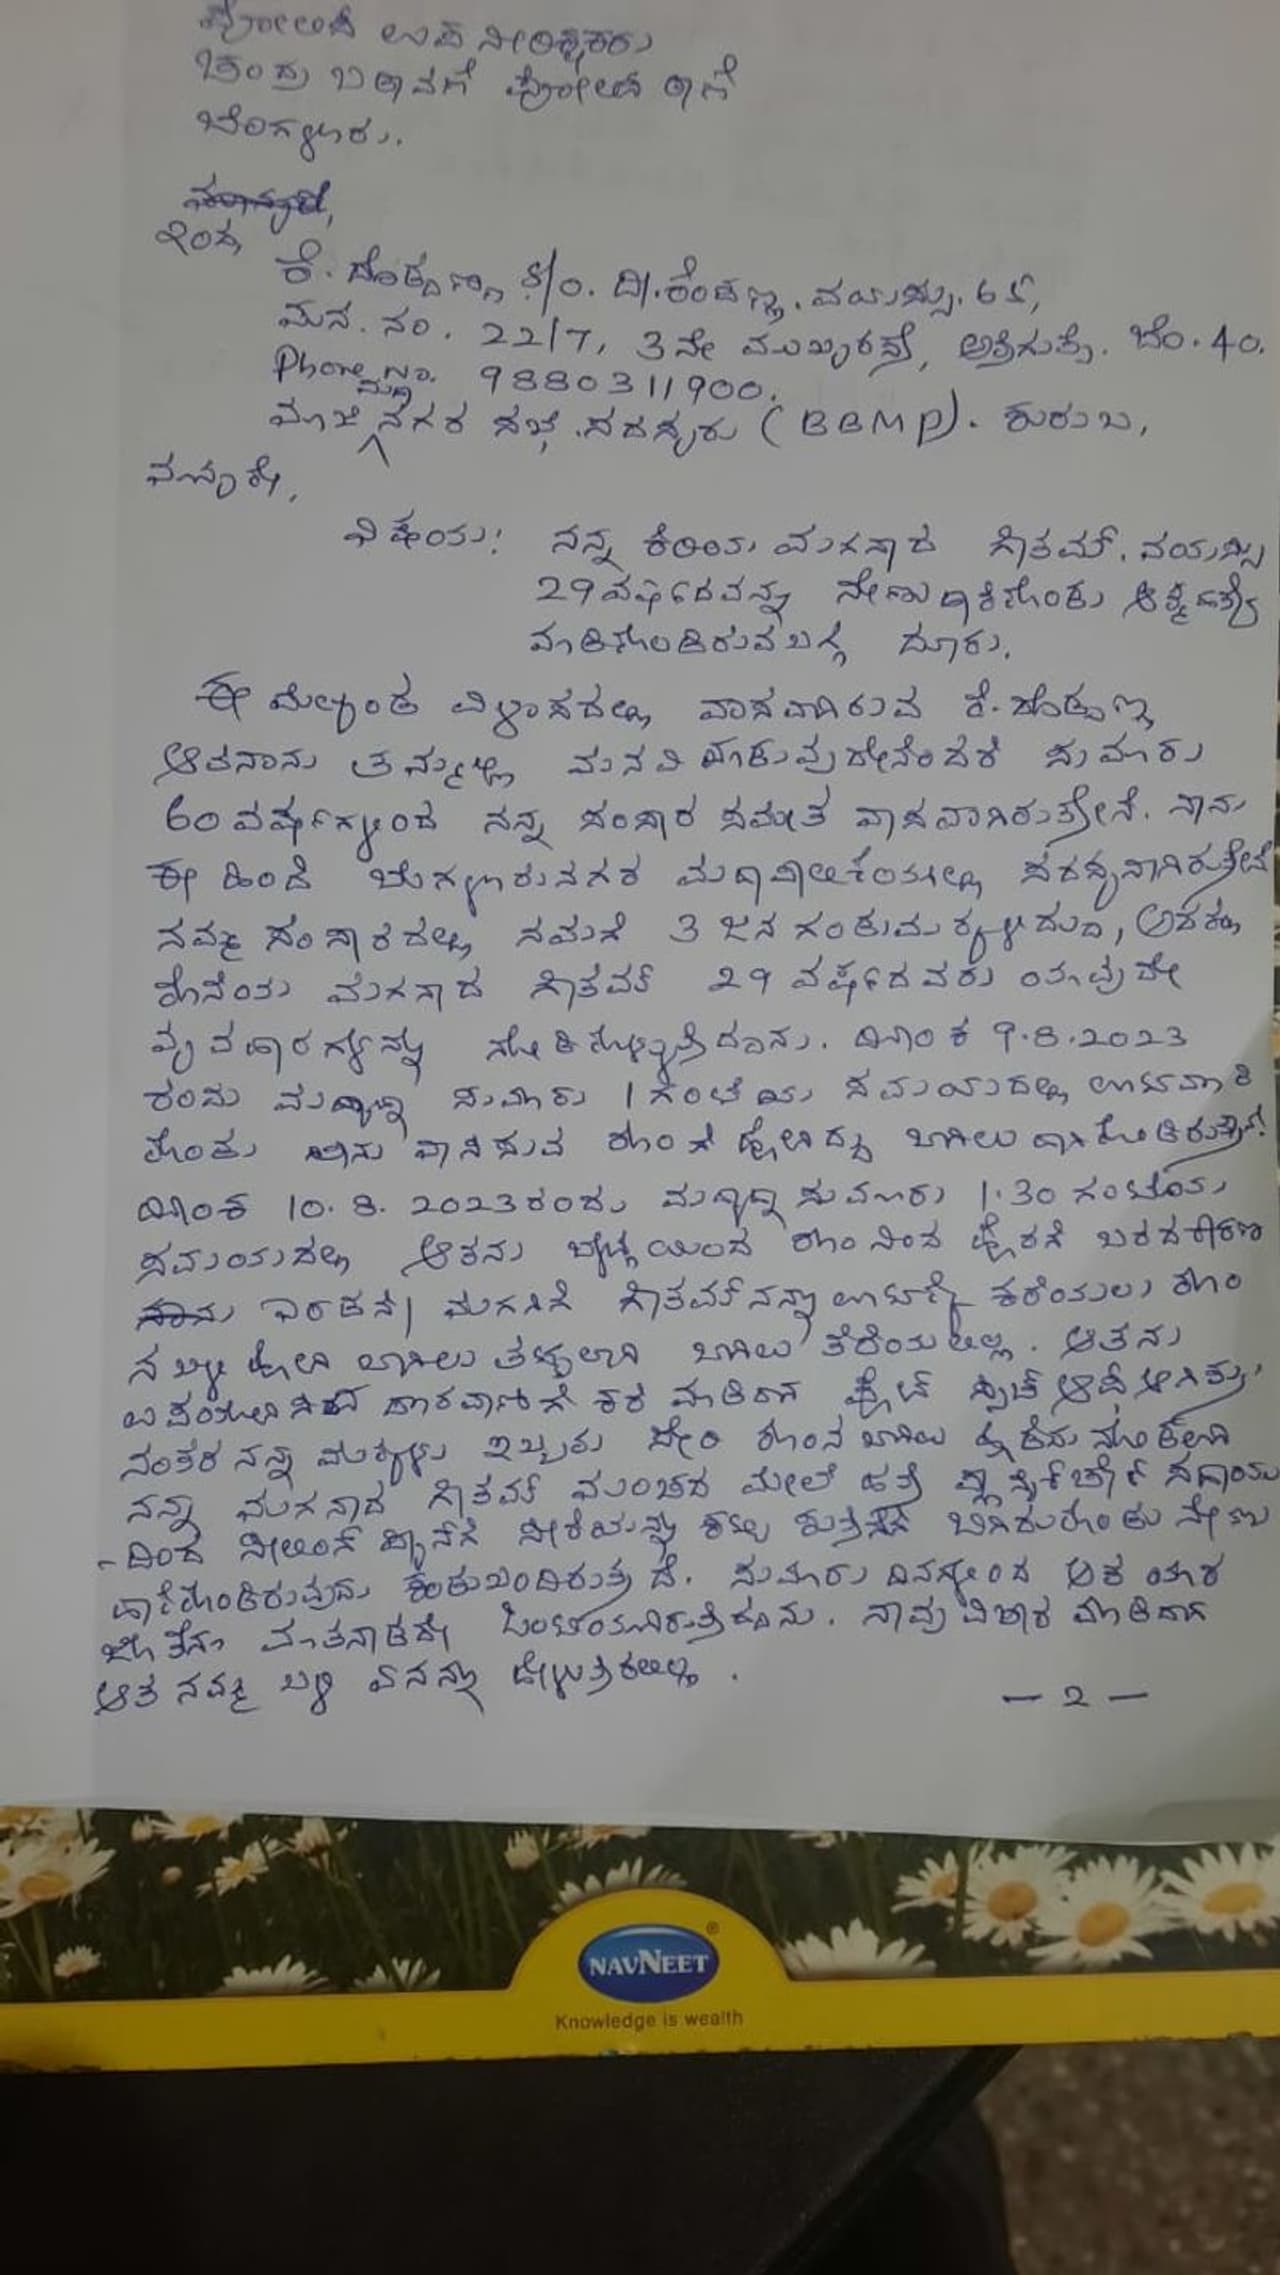 ಪೋಲೀಸ್ ಉಪ ನಿರೀಕ್ಷಕರು
ಚಂದ್ರಾ ಬಡಾವಣೆ ಪೋಲೀಸ್ ಠಾಣೆ
ಬೆಂಗಳೂರು.
ಇಂದ,
ಕೆ. ದೊಡ್ಡಣ್ಣ S/o. ದಿ|. ಕೆಂಪಣ್ಣ. ವಯಸ್ಸು. 65,
ಮನೆ. ನಂ. 22/7, 3ನೇ ಮುಖ್ಯರಸ್ತೆ, ಅತ್ತಿಗುಪ್ಪೆ. ಬೆಂ. 40.
Phone No. 9880311900.
ಮಾಜಿ ನಗರ ಸಭೆ ಸದಸ್ಯರು (BBMP). ಕುರುಬ,
ಮಾನ್ಯರೇ,
ವಿಷಯ: ನನ್ನ ಕಿರಿಯ ಮಗನಾದ ಗೌತಮ್. ವಯಸ್ಸು
29 ವರ್ಷದವನು ನೇಣು ಹಾಕಿಕೊಂಡು ಆತ್ಮಹತ್ಯೆ
ಮಾಡಿಕೊಂಡಿರುವ ಬಗ್ಗೆ ದೂರು.
ಈ ಮೇಲ್ಕಂಡ ವಿಳಾಸದಲ್ಲಿ ವಾಸವಾಗಿರುವ ಕೆ. ದೊಡ್ಡಣ್ಣ
ಆದ ನಾನು ತಮ್ಮಲ್ಲಿ ಮನವಿ ಮಾಡುವುದೇನೆಂದರೆ ಸುಮಾರು
60 ವರ್ಷಗಳಿಂದ ನನ್ನ ಸಂಸಾರ ಸಮೇತ ವಾಸವಾಗಿರುತ್ತೇನೆ. ನಾನು
ಈ ಹಿಂದೆ ಬೆಂಗಳೂರು ನಗರ ಮಹಾಪಾಲಿಕೆಯಲ್ಲಿ ಸದಸ್ಯನಾಗಿರುತ್ತೇನೆ
ನಮ್ಮ ಸಂಸಾರದಲ್ಲಿ ನಮಗೆ 3 ಜನ ಗಂಡು ಮಕ್ಕಳಿದ್ದು, ಅದರಲ್ಲಿ
ಕೊನೆಯ ಮಗನಾದ ಗೌತಮ್ 29 ವರ್ಷದವರು ಯಾವುದೇ
ವ್ಯವಹಾರಗಳನ್ನು ನೋಡಿಕೊಳ್ಳುತ್ತಿದ್ದನು. ದಿನಾಂಕ 9.8.2023
ರಂದು ಮಧ್ಯಾಹ್ನ ಸುಮಾರು 1 ಗಂಟೆಯ ಸಮಯದಲ್ಲಿ ಊಟ ಮಾಡಿ
ಕೊಂಡು ತಾನು ವಾಸಿಸುವ ರೂಂಗೆ ಹೋಗಿದ್ದು ಬಾಗಿಲು ಹಾಕಿಕೊಂಡಿರುತ್ತಾನೆ.
ದಿನಾಂಕ 10.8.2023 ರಂದು ಮಧ್ಯಾಹ್ನ ಸುಮಾರು 1.30 ಗಂಟೆಯ
ಸಮಯದಲ್ಲಿ ಆತನು ಬೆಳಿಗ್ಗೆಯಿಂದ ರೂಂನಿಂದ ಹೊರಗೆ ಬರದ ಕಾರಣ
ಎರಡನೇ ಮಗನಿಗೆ ಗೌತಮ್ ನನ್ನು ಊಟಕ್ಕೆ ಕರೆಯಲು ರೂಂ
ನ ಬಳಿ ಹೋಗಿ ಬಾಗಿಲು ತಟ್ಟಲಾಗಿ ಬಾಗಿಲು ತೆರೆಯಲಿಲ್ಲ. ಆತನು
ಉಪಯೋಗಿಸುವ ದೂರವಾಣಿಗೆ ಕರೆ ಮಾಡಿದಾಗ ಫೋನ್ ಸ್ವಿಚ್ ಆಫ್ ಆಗಿತ್ತು,
ನಂತರ ನನ್ನ ಮಕ್ಕಳು ಇಬ್ಬರು ಸೇರಿ ರೂಂನ ಬಾಗಿಲು ಹೊಡೆದು ನೋಡಲಾಗಿ
ನನ್ನ ಮಗನಾದ ಗೌತಮ್ ಮಂಚದ ಮೇಲೆ ಹತ್ತಿ ಪ್ಲಾಸ್ಟಿಕ್ ಚೇರ್ ಸಹಾಯ
-ದಿಂದ ಸೀಲಿಂಗ್ ಫ್ಯಾನ್‌ಗೆ ಸೀರೆಯನ್ನು ಕಟ್ಟಿ ಕುತ್ತಿಗೆಗೆ ಬಿಗಿದುಕೊಂಡು ನೇಣು
ಹಾಕಿಕೊಂಡಿರುವುದು ಕಂಡುಬಂದಿರುತ್ತದೆ. ಸುಮಾರು ದಿನಗಳಿಂದ ಆತ ಯಾರ
ಜೊತೆಗೂ ಮಾತನಾಡದೇ ಒಂಟಿಯಾಗಿರುತ್ತಿದ್ದನು. ನಾವು ವಿಚಾರ ಮಾಡಿದಾಗ
ಆತ ನಮ್ಮ ಬಳಿ ಏನನ್ನೂ ಹೇಳುತ್ತಿರಲಿಲ್ಲ.
— 2 —
NAVNEET
Knowledge is wealth